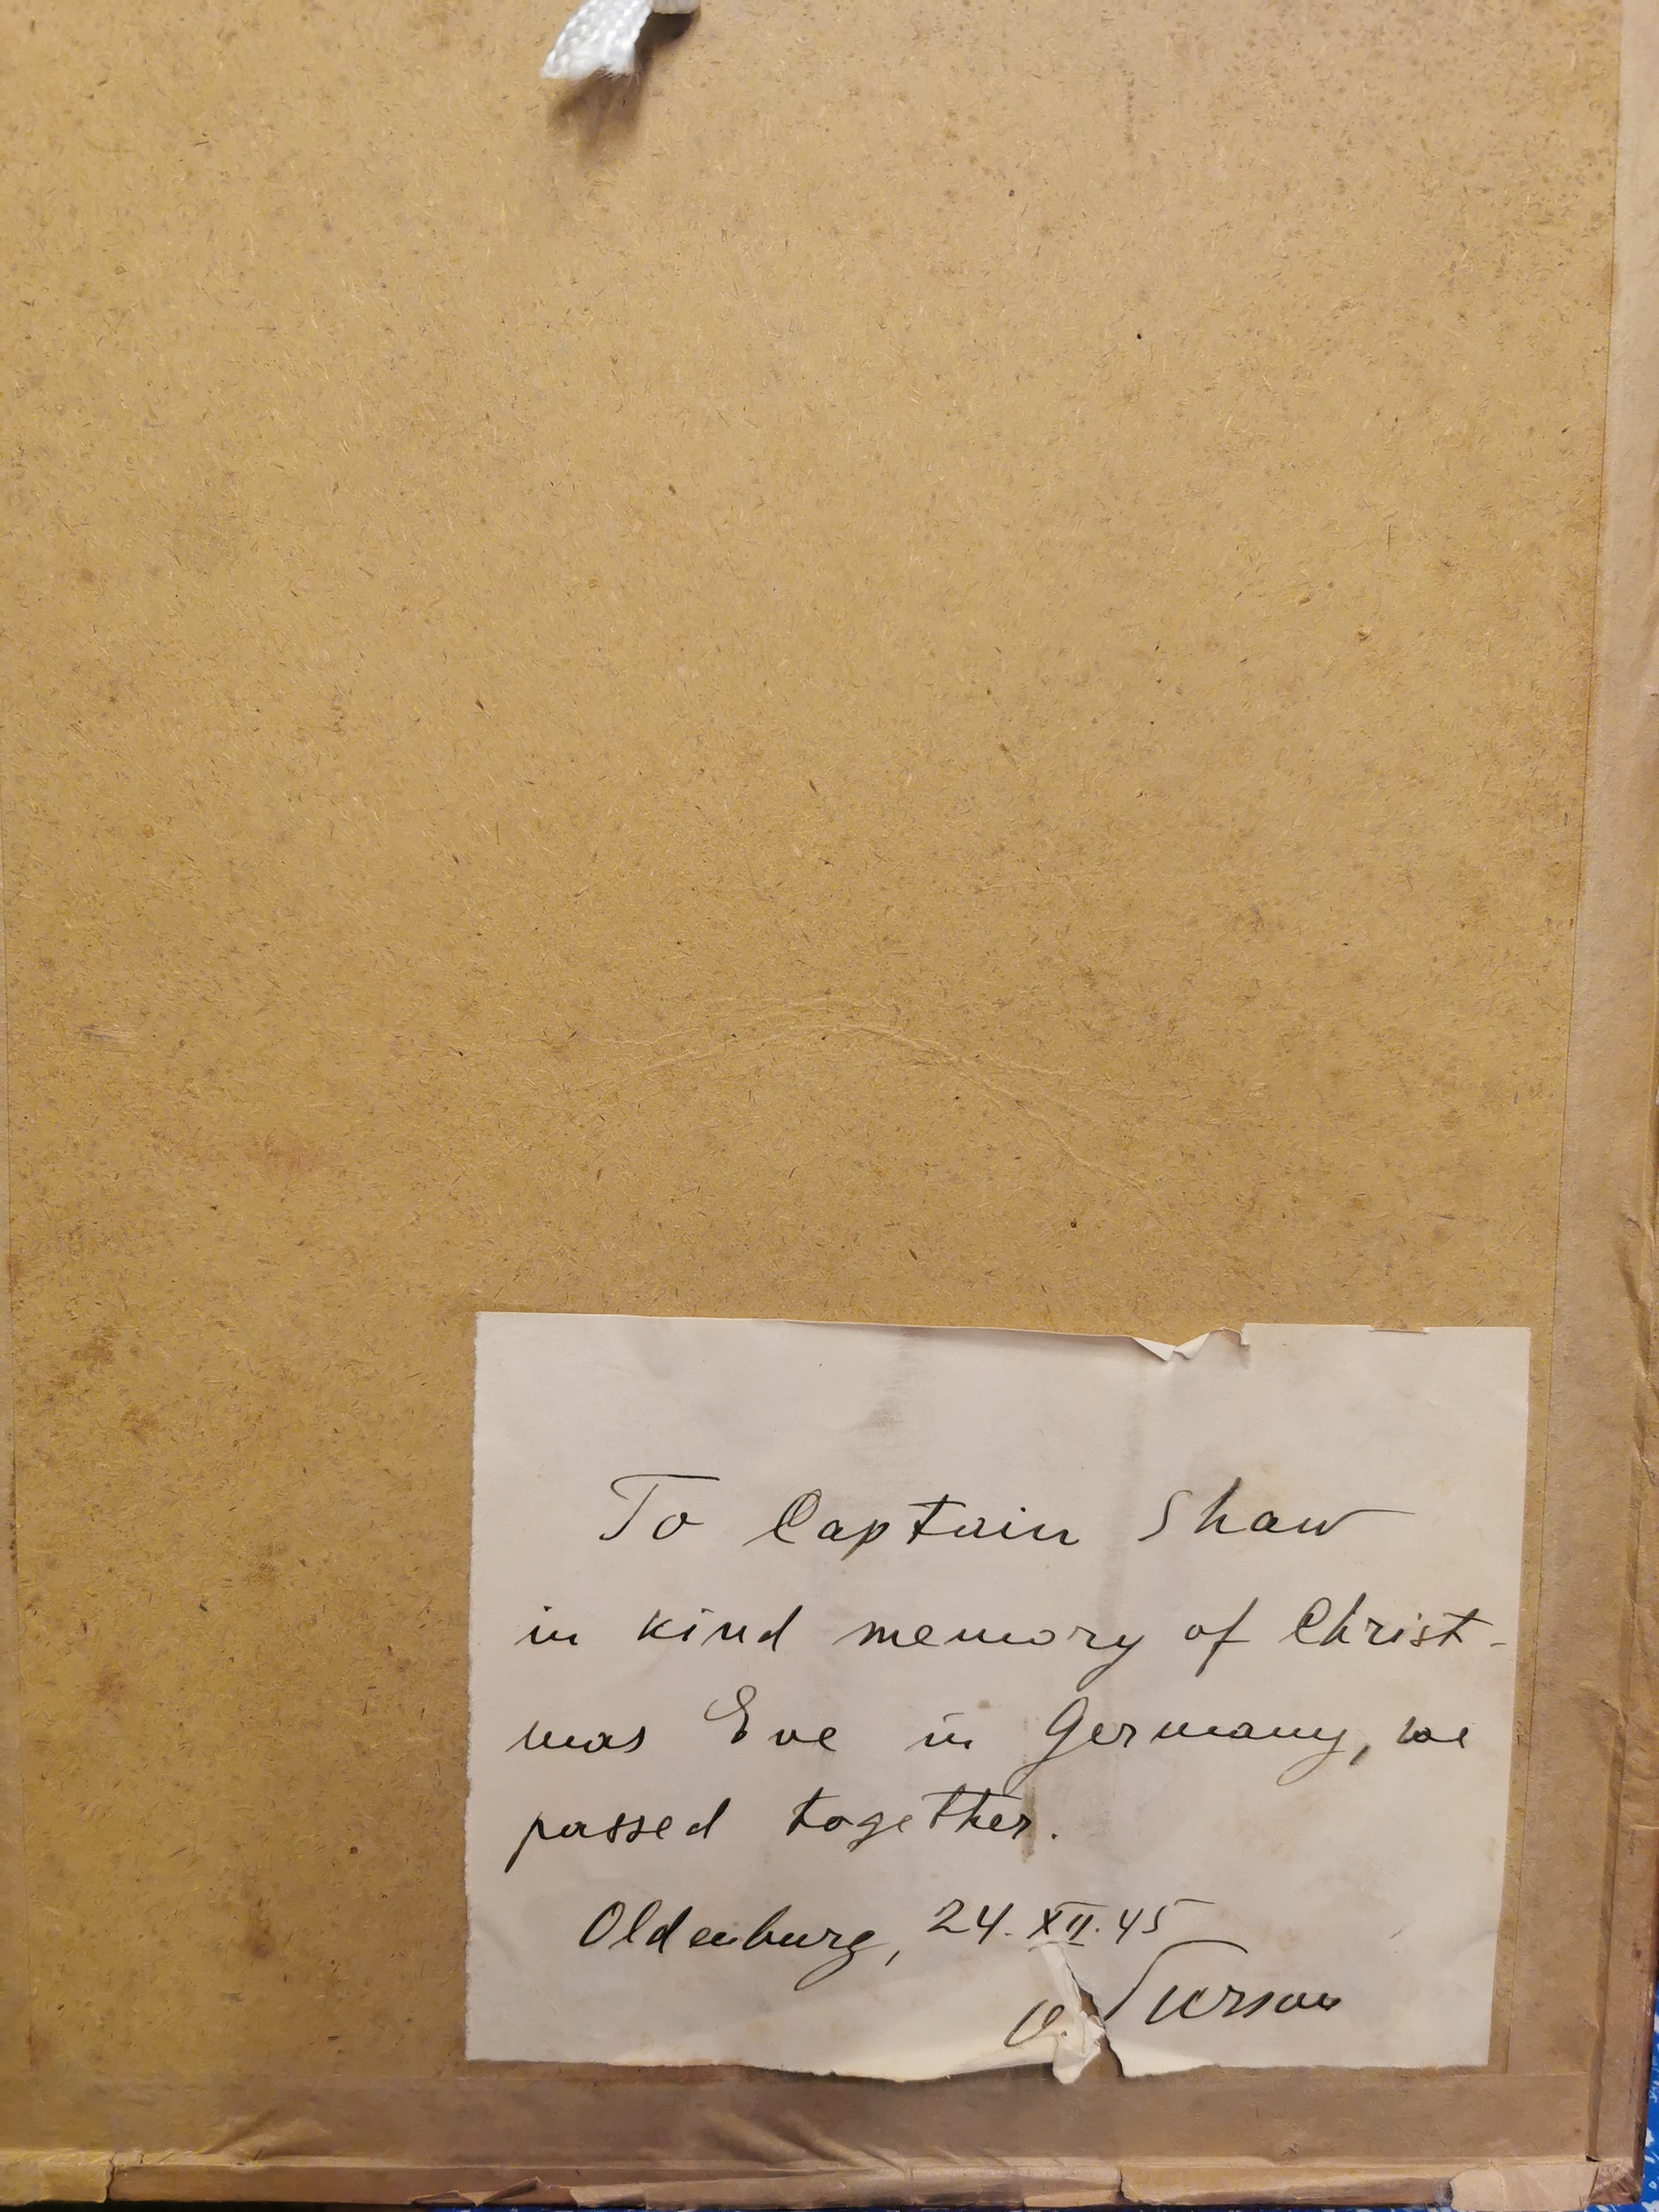 To Captain Shaw
in kind memory of Christ-
mas Eve in Germany, we
passed together.
Oldenburg, 24.XII.45